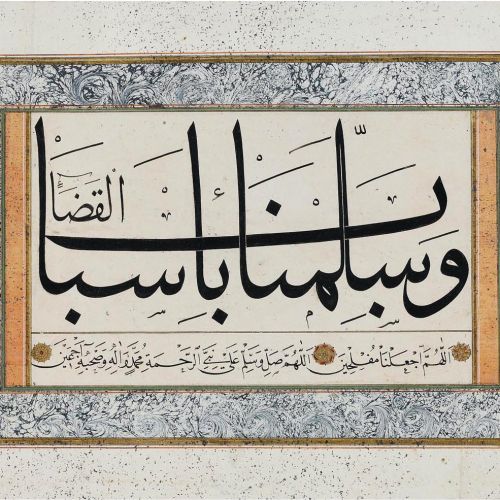 وسلمنا بأسباب القضا
اللهم اجعلنا مفلحين اللهم صل وسلم على نبي الرحمة محمد وآله وصحبه أجمعين